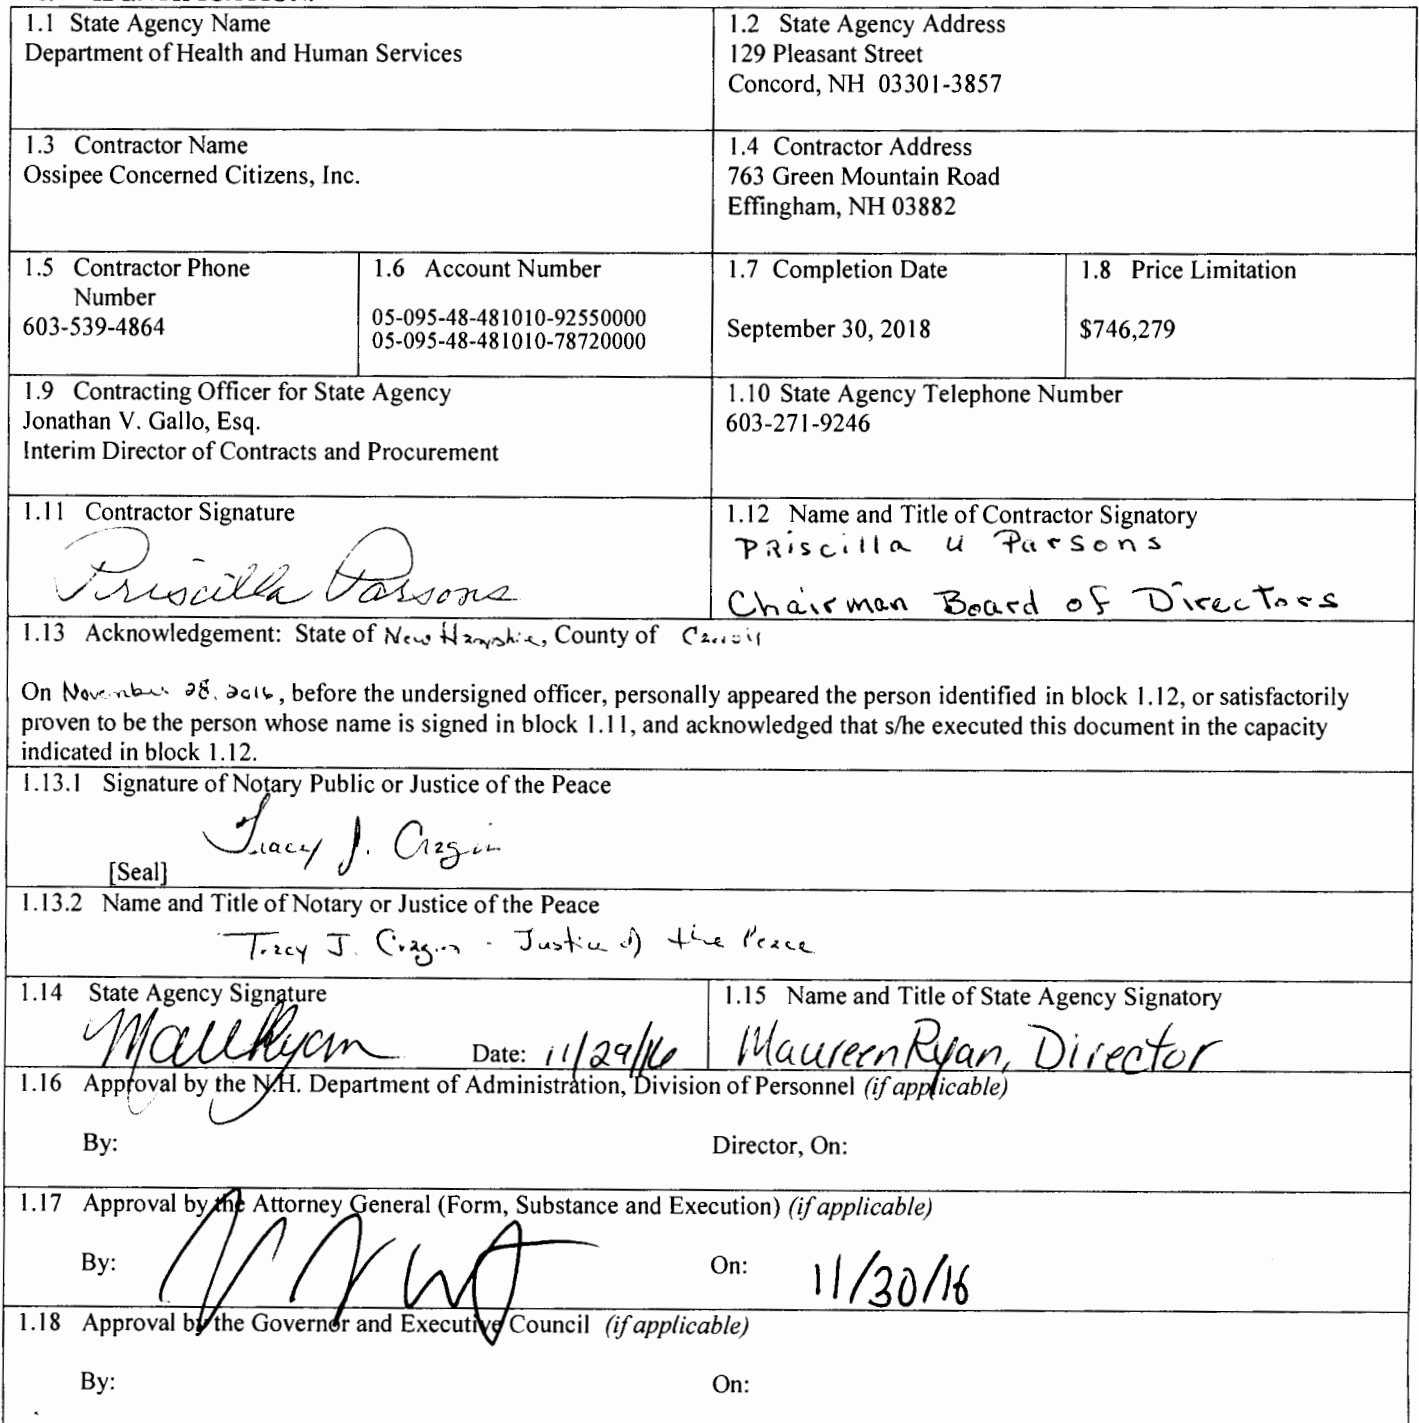 1.1 State Agency Name
Department of Health and Human Services
1.2 State Agency Address
129 Pleasant Street
Concord, NH 03301-3857
1.3 Contractor Name
Ossipee Concerned Citizens, Inc.
1.4 Contractor Address
763 Green Mountain Road
Effingham, NH 03882
1.5 Contractor Phone
Number
603-539-4864
1.6 Account Number
05-095-48-481010-92550000
05-095-48-481010-78720000
1.7 Completion Date
September 30, 2018
1.8 Price Limitation
$746,279
1.9 Contracting Officer for State Agency
Jonathan V. Gallo, Esq.
Interim Director of Contracts and Procurement
1.10 State Agency Telephone Number
603-271-9246
1.11 Contractor Signature
Priscilla Parsons
1.12 Name and Title of Contractor Signatory
Priscilla U Parsons
Chairman Board of Directors
1.13 Acknowledgement: State of New Hampshire, County of Carroll
On November 28, 2016, before the undersigned officer, personally appeared the person identified in block 1.12, or satisfactorily
proven to be the person whose name is signed in block 1.11, and acknowledged that s/he executed this document in the capacity
indicated in block 1.12.
1.13.1 Signature of Notary Public or Justice of the Peace
Tracy J. Cragin
[Seal]
1.13.2 Name and Title of Notary or Justice of the Peace
Tracy J. Cragin - Justice of the Peace
1.14 State Agency Signature
Date: 11/29/16
1.15 Name and Title of State Agency Signatory
Maureen Ryan, Director
1.16 Approval by the N.H. Department of Administration, Division of Personnel (if applicable)
By:
Director, On:
1.17 Approval by the Attorney General (Form, Substance and Execution) (if applicable)
By:
On: 11/30/16
1.18 Approval by the Governor and Executive Council (if applicable)
By:
On: